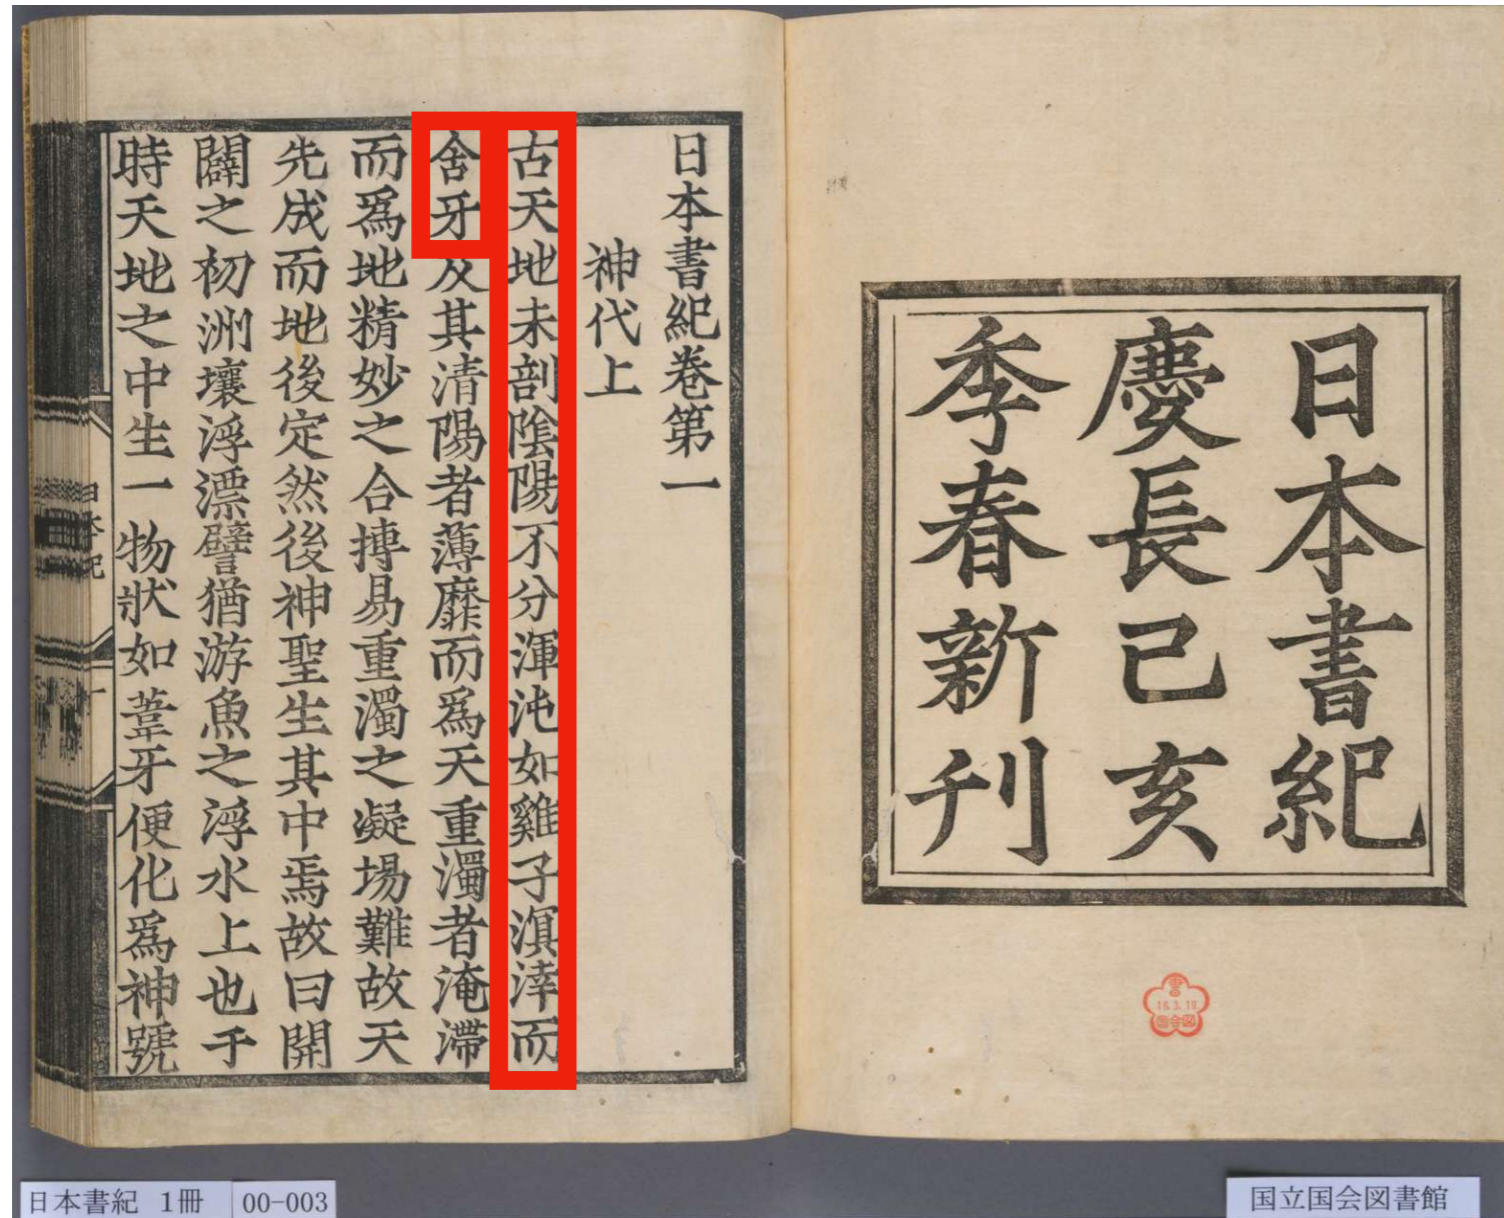 日本書紀
慶長己亥
季春新刊
日本書紀卷第一
神代上
古天地未剖陰陽不分渾沌如雞子溟涬而
含牙及其清陽者薄靡而爲天重濁者淹滯
而爲地精妙之合搏易重濁之凝場難故天
先成而地後定然後神聖生其中焉故曰開
闢之初洲壤浮漂譬猶游魚之浮水上也于
時天地之中生一物狀如葦牙便化爲神號
日本紀
一
日本書紀 1冊
00-003
国立国会図書館
16.3.18